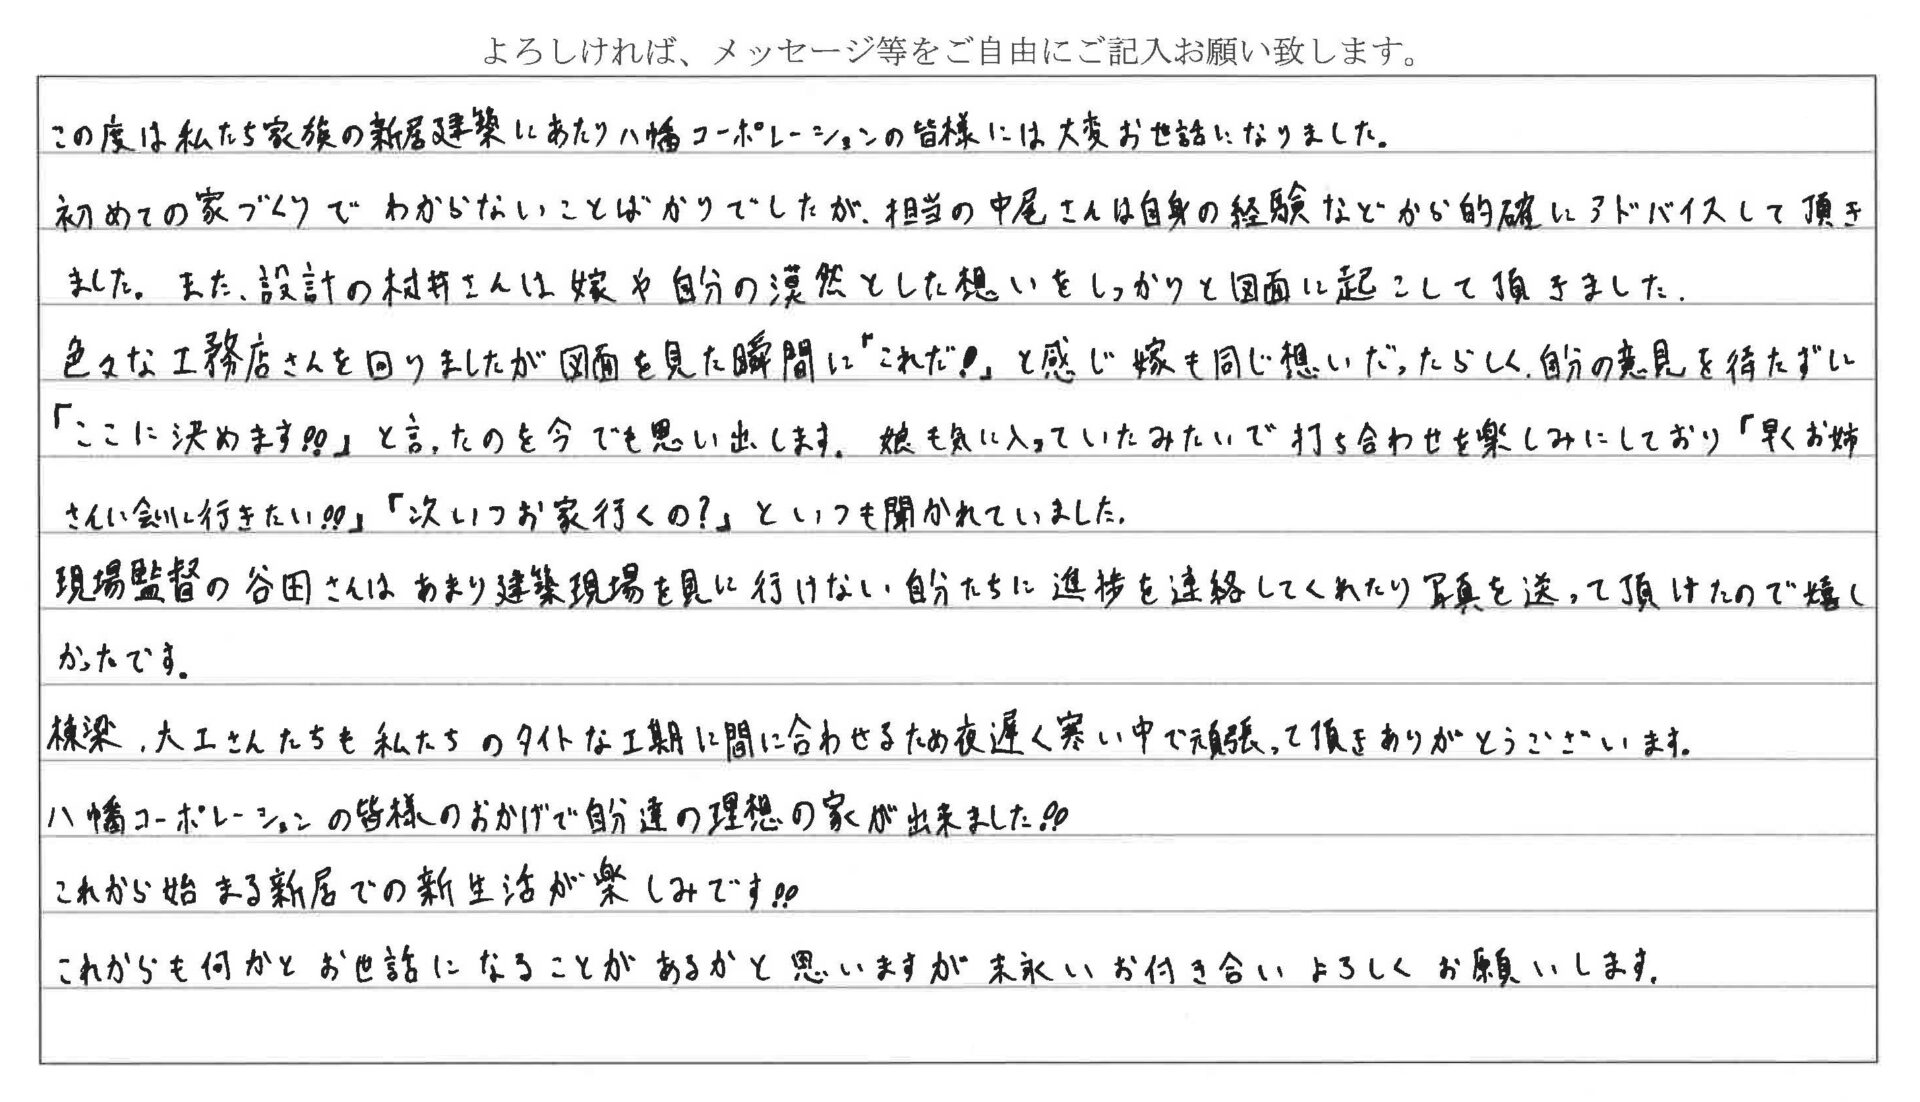 よろしければ、メッセージ等をご自由にご記入お願い致します。
この度は私たち家族の新居建築にあたり八幡コーポレーションの皆様には大変お世話になりました。
初めての家づくりでわからないことばかりでしたが、担当の中尾さんは自身の経験などから的確にアドバイスして頂き
ました。また、設計の村井さんは嫁や自分の漠然とした想いをしっかりと図面に起こして頂きました。
色々な工務店さんを回りましたが図面を見た瞬間に「これだ!」と感じ嫁も同じ想いだったらしく、自分の意見を待たずに
「ここに決めます!!」と言ったのを今でも思い出します。娘も気に入っていたみたいで打ち合わせを楽しみにしており「早くお姉
さんに会いに行きたい!!」「次いつお家行くの?」といつも聞かれていました。
現場監督の谷田さんはあまり建築現場を見に行けない自分たちに進捗を連絡してくれたり写真を送って頂けたので嬉し
かったです。
棟梁、大工さんたちも私たちのタイトな工期に間に合わせるため夜遅く寒い中で頑張って頂きありがとうございます。
八幡コーポレーションの皆様のおかげで自分達の理想の家が出来ました!!
これから始まる新居での新生活が楽しみです!!
これからも何かとお世話になることがあるかと思いますが末永いお付き合いよろしくお願いします。